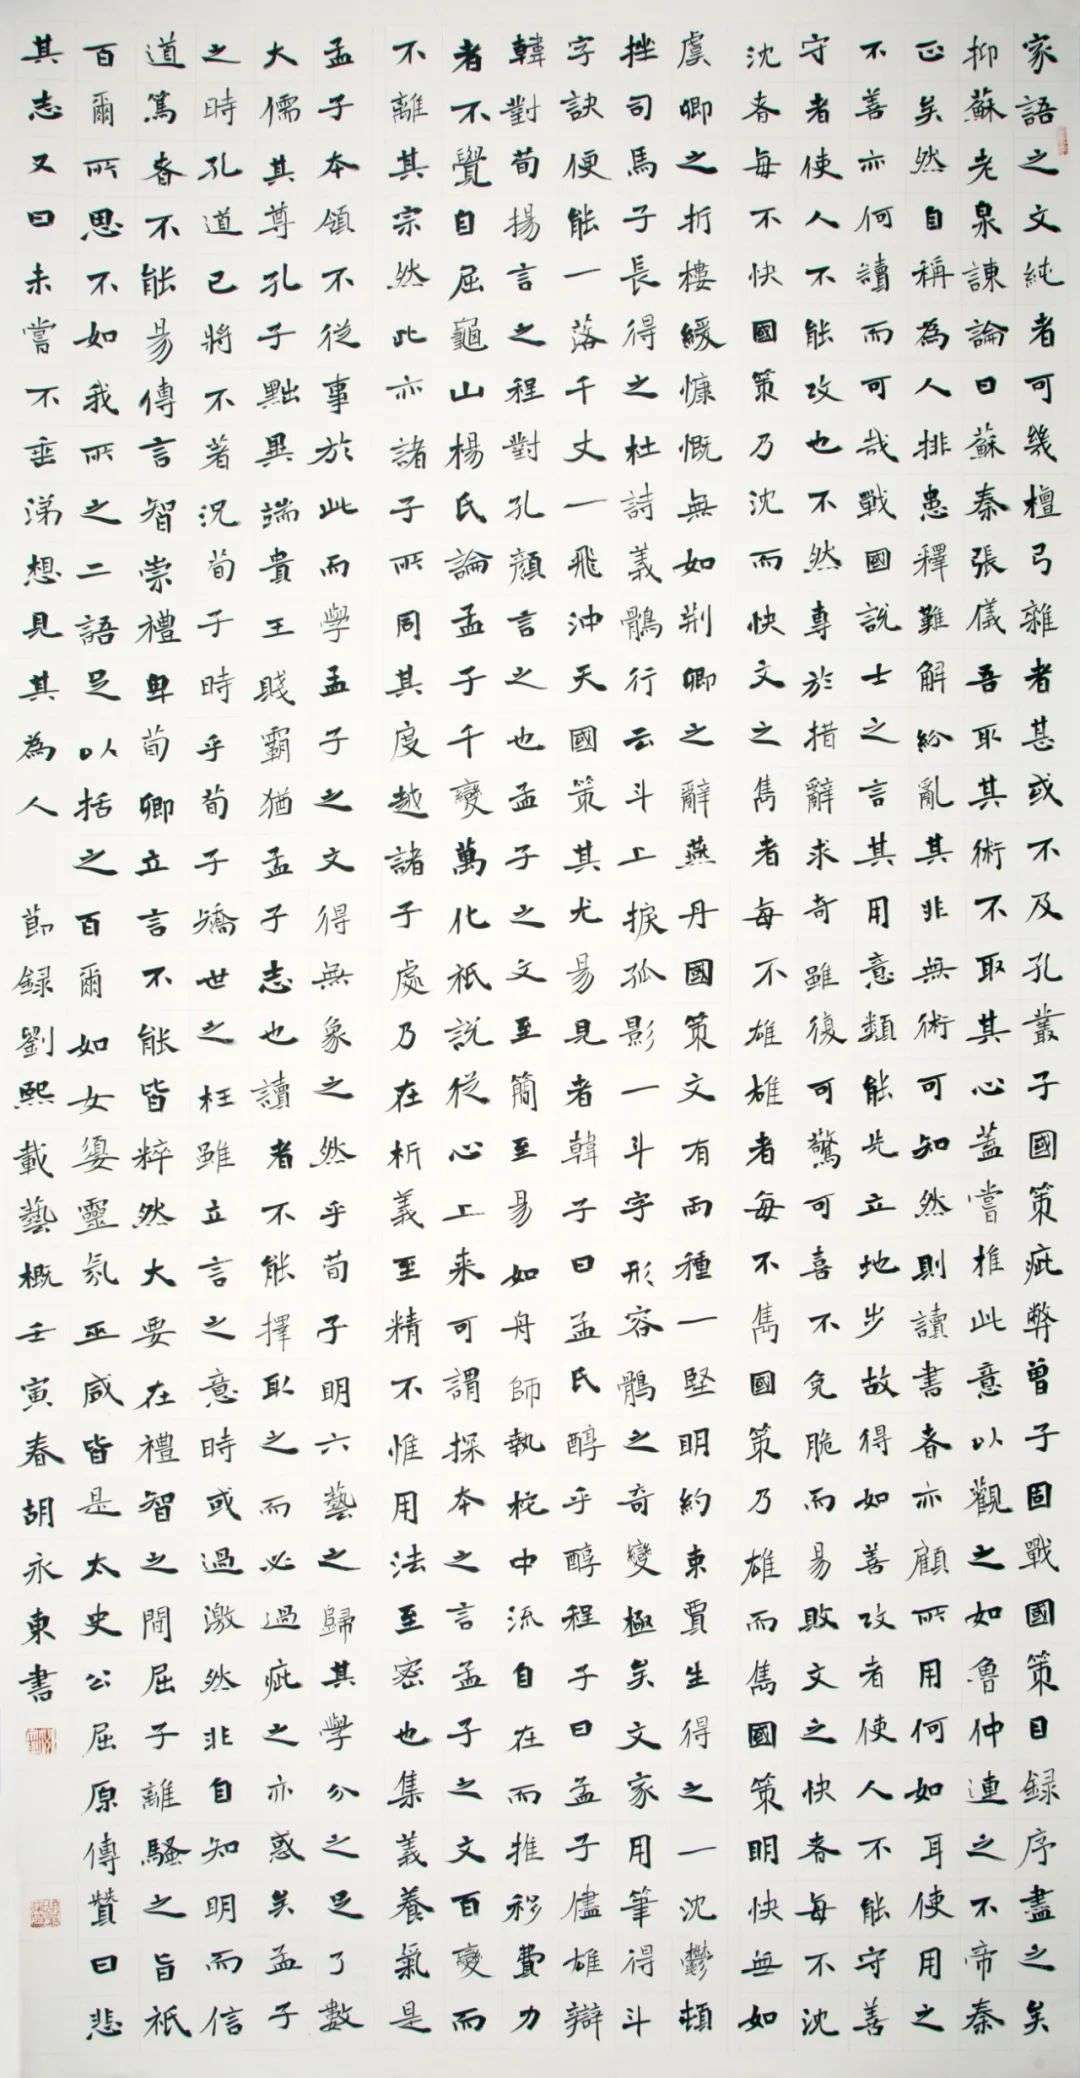 家語之文純者可幾檀弓雜者甚或不及孔叢子國策疵弊曾子固戰國策目録序盡之矣
抑蘇老泉諫論曰蘇秦張儀吾取其術不取其心蓋嘗推此意以觀之如魯仲連之不帝秦
正矣然自稱為人排患釋難解紛亂其非無術可知然則讀書者亦顧所用何如耳使用之
不善亦何讀而可哉戰國說士之言其用意類能先立地步故得如善攻者使人不能守善
守者使人不能攻也不然專於措辭求奇雖復可驚可喜不免脆而易敗文之快者每不沈
沈者每不快國策乃沈而快文之雋者每不雄雄者每不雋國策乃雄而雋國策明快無如
虞卿之折樓緩慷慨無如荊卿之辭燕丹國策文有兩種一堅明約束賈生得之一沈鬱頓
挫司馬子長得之杜詩義鶻行云斗上捩孤影一斗字形容鶻之奇變極矣文家用筆得斗
字訣便能一落千丈一飛沖天國策其尤易見者韓子曰孟氏醇乎醇程子曰孟子儘雄辯
韓對荀揚言之程對孔顏言之也孟子之文至簡至易如舟師執柁中流自在而推移費力
者不覺自屈龜山楊氏論孟子千變萬化祇說從心上来可謂探本之言孟子之文百變而
不離其宗然此亦諸子所同其度越諸子處乃在析義至精不惟用法至密也集義養氣是
孟子本領不從事於此而學孟子之文得無象之然乎荀子明六藝之歸其學分之足了數
大儒其尊孔子黜異端貴王賤霸猶孟子志也讀者不能擇取之而必過疵之亦惑矣孟子
之時孔道已將不著況荀子時乎荀子矯世之枉雖立言之意時或過激然非自知明而信
道篤者不能易傳言智崇禮卑荀卿立言不能皆粹然大要在禮智之間屈子離騷之旨祇
百爾所思不如我所之二語足以括之百爾如女嬃靈氛巫咸皆是太史公屈原傳贊曰悲
其志又曰未嘗不垂涕想見其為人 節録劉熙載藝概壬寅春胡永東書